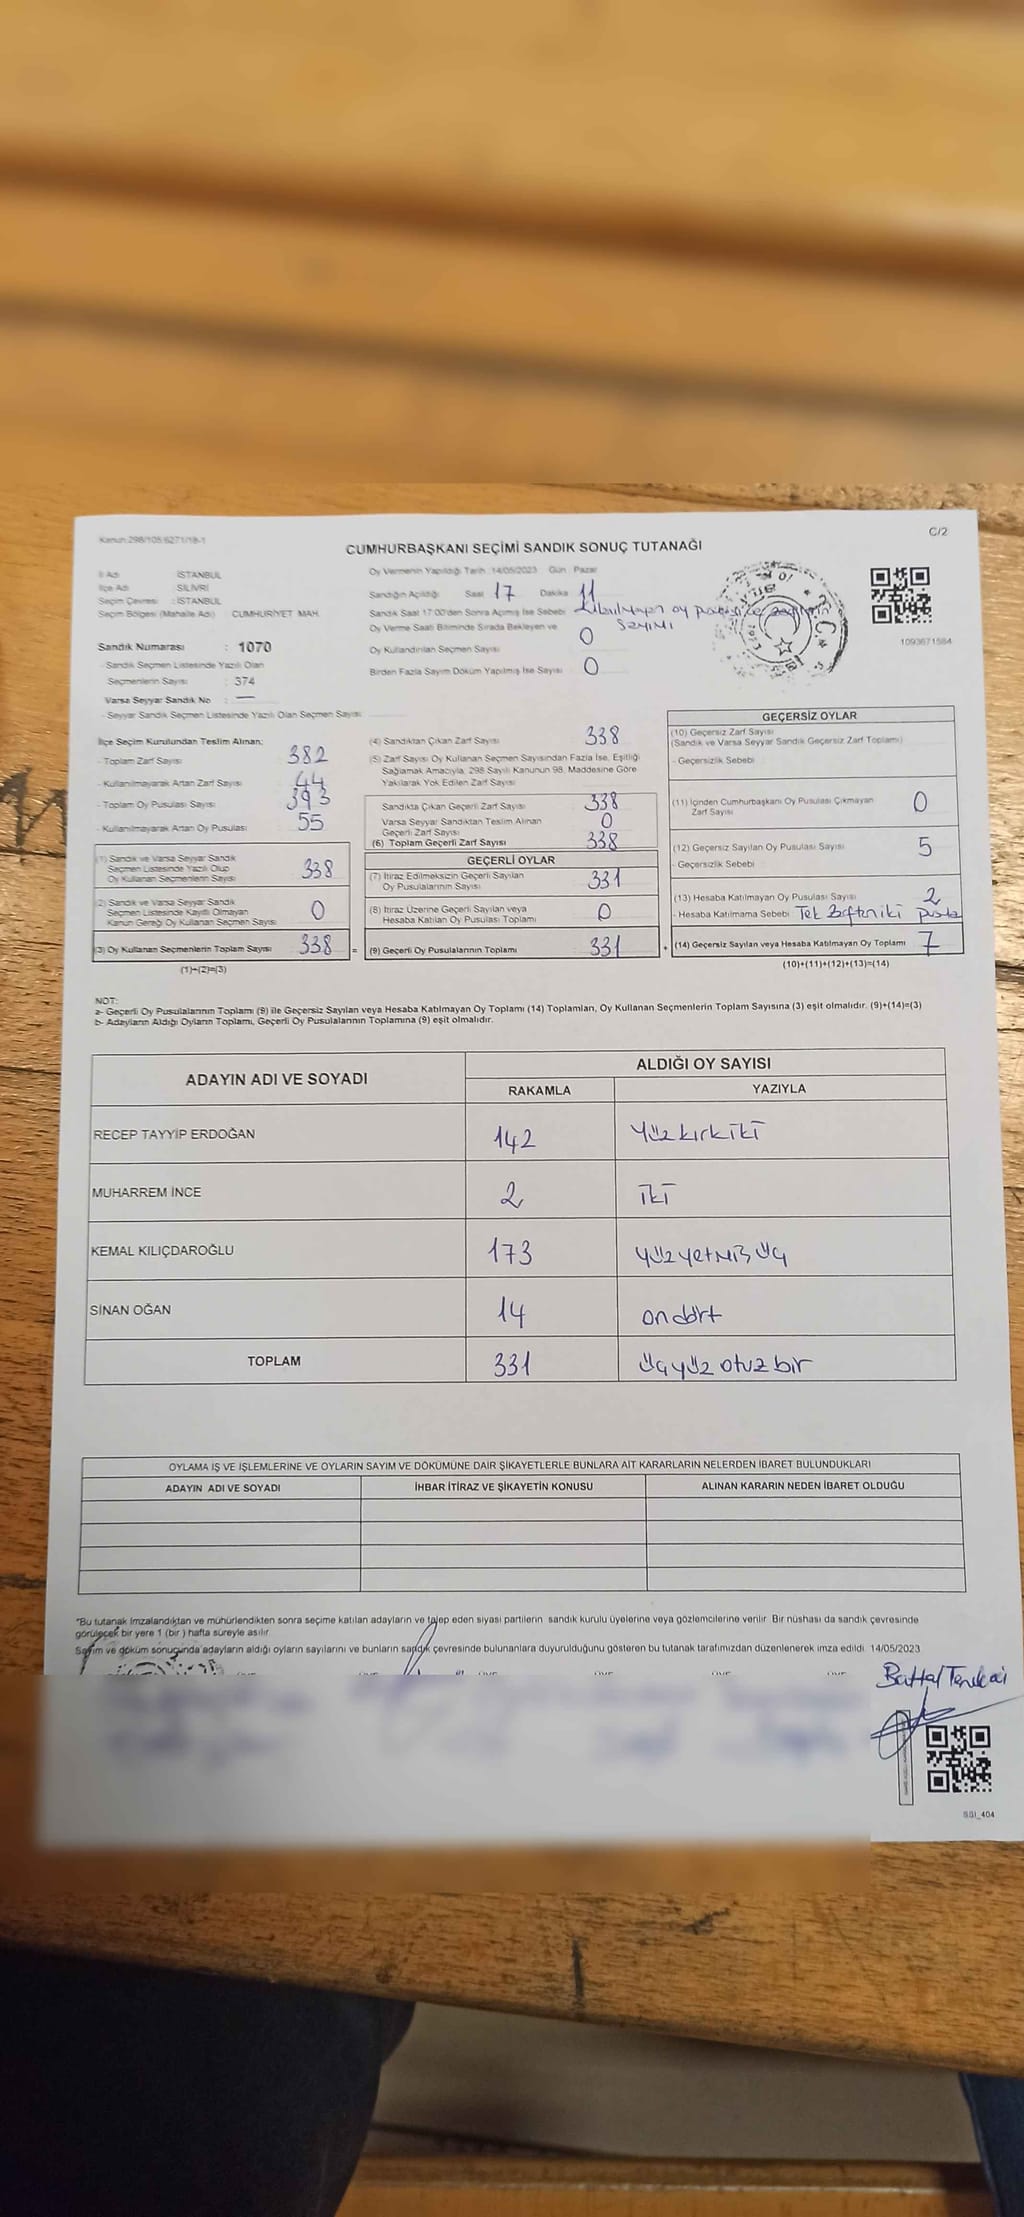 Kanun:298/105;6271/18-1
C/2
CUMHURBAŞKANI SEÇİMİ SANDIK SONUÇ TUTANAĞI
İl Adı : İSTANBUL
İlçe Adı : SİLİVRİ
Seçim Çevresi : İSTANBUL
Seçim Bölgesi (Mahalle Adı) CUMHURİYET MAH.
Sandık Numarası : 1070
- Sandık Seçmen Listesinde Yazılı Olan
Seçmenlerin Sayısı : 374
Varsa Seyyar Sandık No : —
- Seyyar Sandık Seçmen Listesinde Yazılı Olan Seçmen Sayısı
Oy Vermenin Yapıldığı Tarih :14/05/2023 Gün : Pazar
Sandığın Açıldığı Saat 17 Dakika 11
Sandık Saat 17:00'den Sonra Açılmış İse Sebebi oy
sayımı
Oy Verme Saati Bitiminde Sırada Bekleyen ve
Oy Kullandırılan Seçmen Sayısı 0
Birden Fazla Sayım Döküm Yapılmış İse Sayısı 0
1093671584
İlçe Seçim Kurulundan Teslim Alınan;
- Toplam Zarf Sayısı 382
- Kullanılmayarak Artan Zarf Sayısı 44
- Toplam Oy Pusulası Sayısı 393
- Kullanılmayarak Artan Oy Pusulası 55
(1) Sandık ve Varsa Seyyar Sandık
Seçmen Listesinde Yazılı Olup
Oy Kullanan Seçmenlerin Sayısı 338
(2) Sandık ve Varsa Seyyar Sandık
Seçmen Listesinde Kayıtlı Olmayan
Kanun Gereği Oy Kullanan Seçmen Sayısı 0
(3) Oy Kullanan Seçmenlerin Toplam Sayısı 338 =
(1)+(2)=(3)
(4) Sandıktan Çıkan Zarf Sayısı 338
(5) Zarf Sayısı Oy Kullanan Seçmen Sayısından Fazla İse, Eşitliği
Sağlamak Amacıyla, 298 Sayılı Kanunun 98. Maddesine Göre
Yakılarak Yok Edilen Zarf Sayısı
Sandıkta Çıkan Geçerli Zarf Sayısı 338
Varsa Seyyar Sandıktan Teslim Alınan
Geçerli Zarf Sayısı 0
(6) Toplam Geçerli Zarf Sayısı 338
GEÇERLİ OYLAR
(7) İtiraz Edilmeksizin Geçerli Sayılan
Oy Pusulalarının Sayısı 331
(8) İtiraz Üzerine Geçerli Sayılan veya
Hesaba Katılan Oy Pusulası Toplamı 0
(9) Geçerli Oy Pusulalarının Toplamı 331 +
GEÇERSİZ OYLAR
(10) Geçersiz Zarf Sayısı
(Sandık ve Varsa Seyyar Sandık Geçersiz Zarf Toplamı)
- Geçersizlik Sebebi
(11) İçinden Cumhurbaşkanı Oy Pusulası Çıkmayan
Zarf Sayısı 0
(12) Geçersiz Sayılan Oy Pusulası Sayısı 5
- Geçersizlik Sebebi
(13) Hesaba Katılmayan Oy Pusulası Sayısı 2
- Hesaba Katılmama Sebebi Tek zaften iki pusla
(14) Geçersiz Sayılan veya Hesaba Katılmayan Oy Toplamı 7
(10)+(11)+(12)+(13)=(14)
NOT:
a- Geçerli Oy Pusulalarının Toplamı (9) ile Geçersiz Sayılan veya Hesaba Katılmayan Oy Toplamı (14) Toplamları, Oy Kullanan Seçmenlerin Toplam Sayısına (3) eşit olmalıdır. (9)+(14)=(3)
b- Adayların Aldığı Oyların Toplamı, Geçerli Oy Pusulalarının Toplamına (9) eşit olmalıdır.
ADAYIN ADI VE SOYADI
ALDIĞI OY SAYISI
RAKAMLA YAZIYLA
RECEP TAYYİP ERDOĞAN 142 Yüz kırk iki
MUHARREM İNCE 2 iki
KEMAL KILIÇDAROĞLU 173 yüz yetmiş üç
SİNAN OĞAN 14 on dört
TOPLAM 331 üç yüz otuz bir
OYLAMA İŞ VE İŞLEMLERİNE VE OYLARIN SAYIM VE DÖKÜMÜNE DAİR ŞİKAYETLERLE BUNLARA AİT KARARLARIN NELERDEN İBARET BULUNDUKLARI
ADAYIN ADI VE SOYADI İHBAR İTİRAZ VE ŞİKAYETİN KONUSU ALINAN KARARIN NEDEN İBARET OLDUĞU
*Bu tutanak imzalandıktan ve mühürlendikten sonra seçime katılan adayların ve talep eden siyasi partilerin sandık kurulu üyelerine veya gözlemcilerine verilir. Bir nüshası da sandık çevresinde
görülecek bir yere 1 (bir ) hafta süreyle asılır.
Sayım ve döküm sonucunda adayların aldığı oyların sayılarını ve bunların sandık çevresinde bulunanlara duyurulduğunu gösteren bu tutanak tarafımızdan düzenlenerek imza edildi. 14/05/2023
Battal
SSI_404